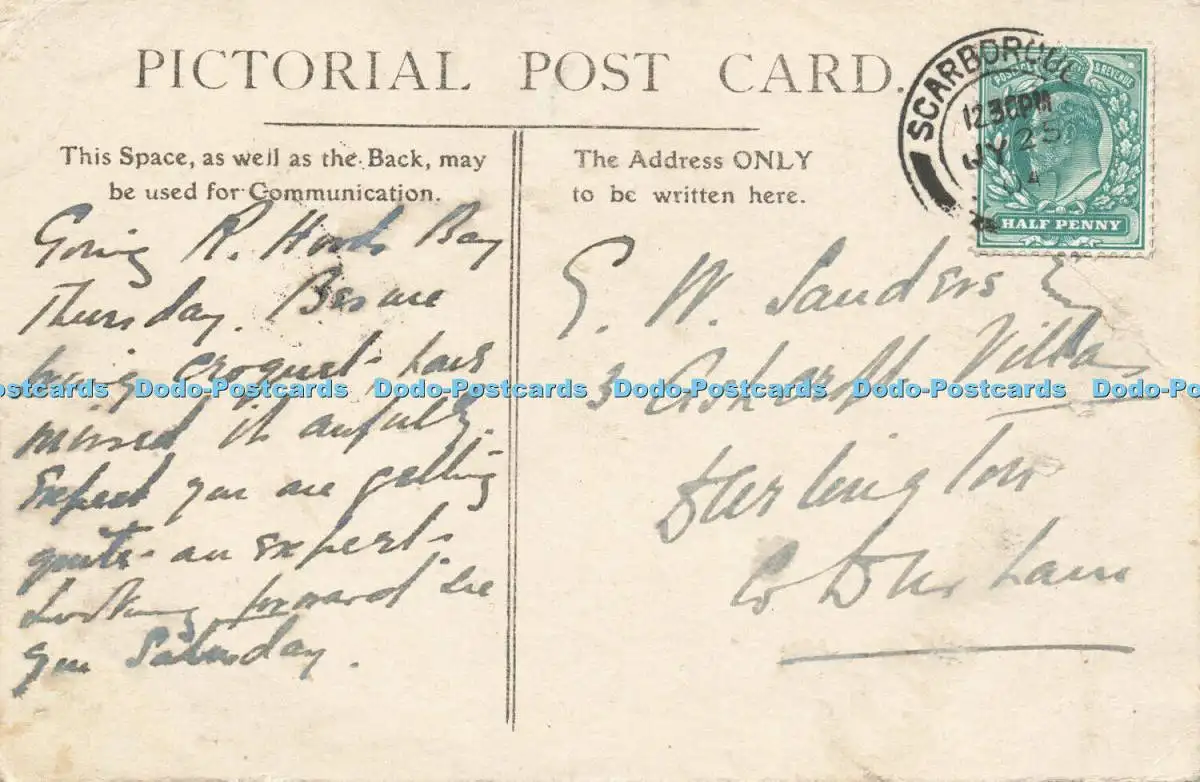 PICTORIAL POST CARD.
This Space, as well as the Back, may
be used for Communication.
The Address ONLY
to be written here.
SCARBOROUG
12 30PM
JY 25
04
POSTAGE & REVENUE
HALF PENNY
Going R. Hoods Bay
Thursday. Bes me
having croquet - have
missed it awfully.
Expect you are getting
quite an expert.
Looking forward see
you Saturday.
G. W. Sanders Esq
3 Villas
Darlington
Co Durham
Dodo-Postcards Dodo-Postcards Dodo-Postcards Dodo-Postcards Dodo-Postcards Dodo-Postcards